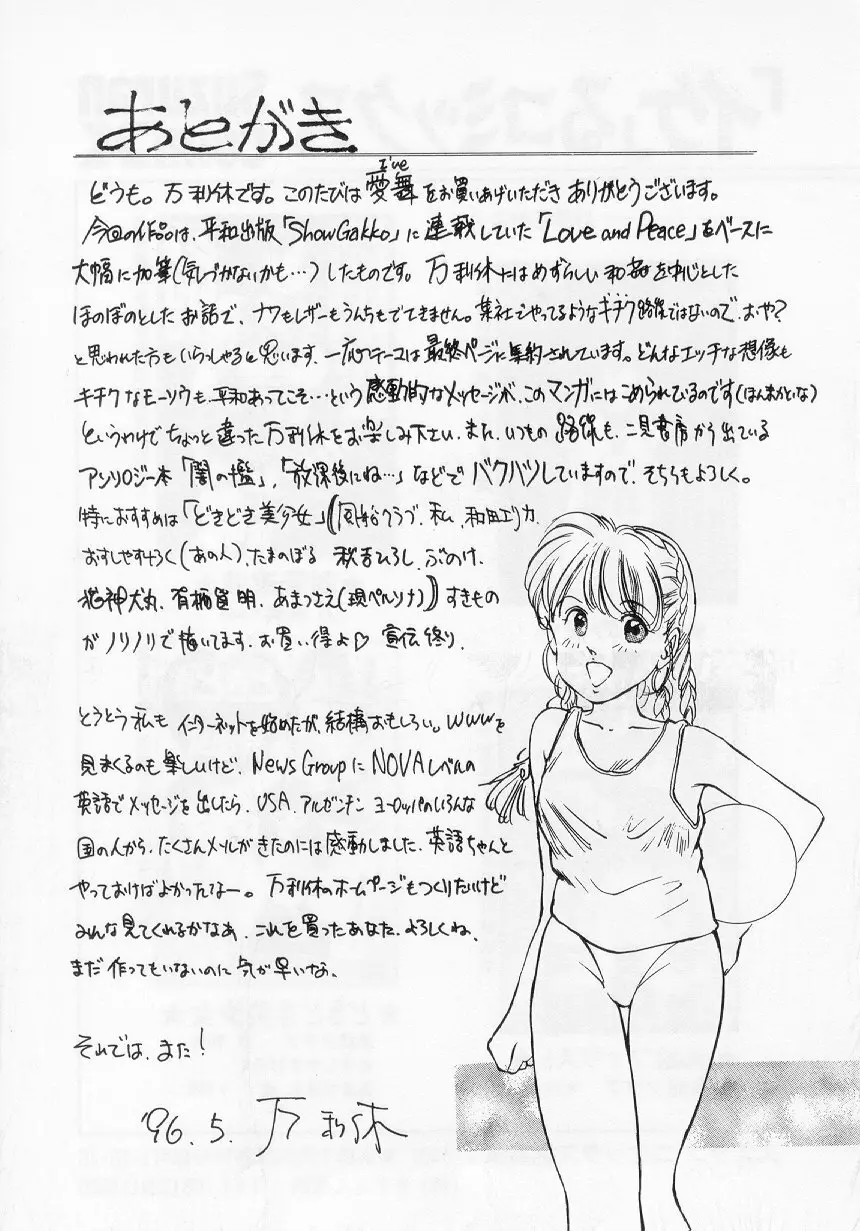 あとがき
どうも。万利休です。このたびは愛舞をお買いあげいただきありがとうございます。
I've
今回の作品は、平和出版「ShowGakko」に連載していた「Love and Peace」をベースに
大幅に加筆(気づかないかも…)したものです。万利休にはめずらしい和姦を中心とした
ほのぼのとしたお話で、ナワもレザーもうんちもでてきません。某社でやってるようなキチク路線ではないので、おや?
と思われた方もいらっしゃると思います、一応テーマは最終ページに集約されています。どんなエッチな想像も
キチクなモーソウも、平和あってこそ…という感動的なメッセージが、このマンガにはこめられているのです(ほんまかいな)
というわけでちょっと違った万利休をお楽しみ下さい、また、いつもの路線も、二見書房から出ている
アンソロジー本「闇の檻」,「放課後にね…」などでバクハツしていますので、そちらもよろしく。
特におすすめは「どきどき美少女」(風船クラブ、私、和田エリカ、
おすしやすすろく(あの人)、たまのぼる 秋吉ひろし、ぶのけ、
犬神犬丸、有栖 明、あまつさえ(現ペルソナ))すきもの
がノリノリで描いてます、お買い得よ♡ 宣伝終り、
とうとう私もインターネットを始めたが、結構おもしろい。WWWを
見まくるのも楽しいけど、News GroupにNOVAレベルの
英語でメッセージを出したら、USA、アルゼンチン ヨーロッパのいろんな
国の人から、たくさんメールがきたのには感動しました、英語ちゃんと
やっておけばよかったなー。万利休のホームページもつくりたいけど
みんな見てくれるかなあ、これを買ったあなた、よろしくね、
まだ作ってもいないのに気が早いな、
それでは、また!
'96.5. 万利休